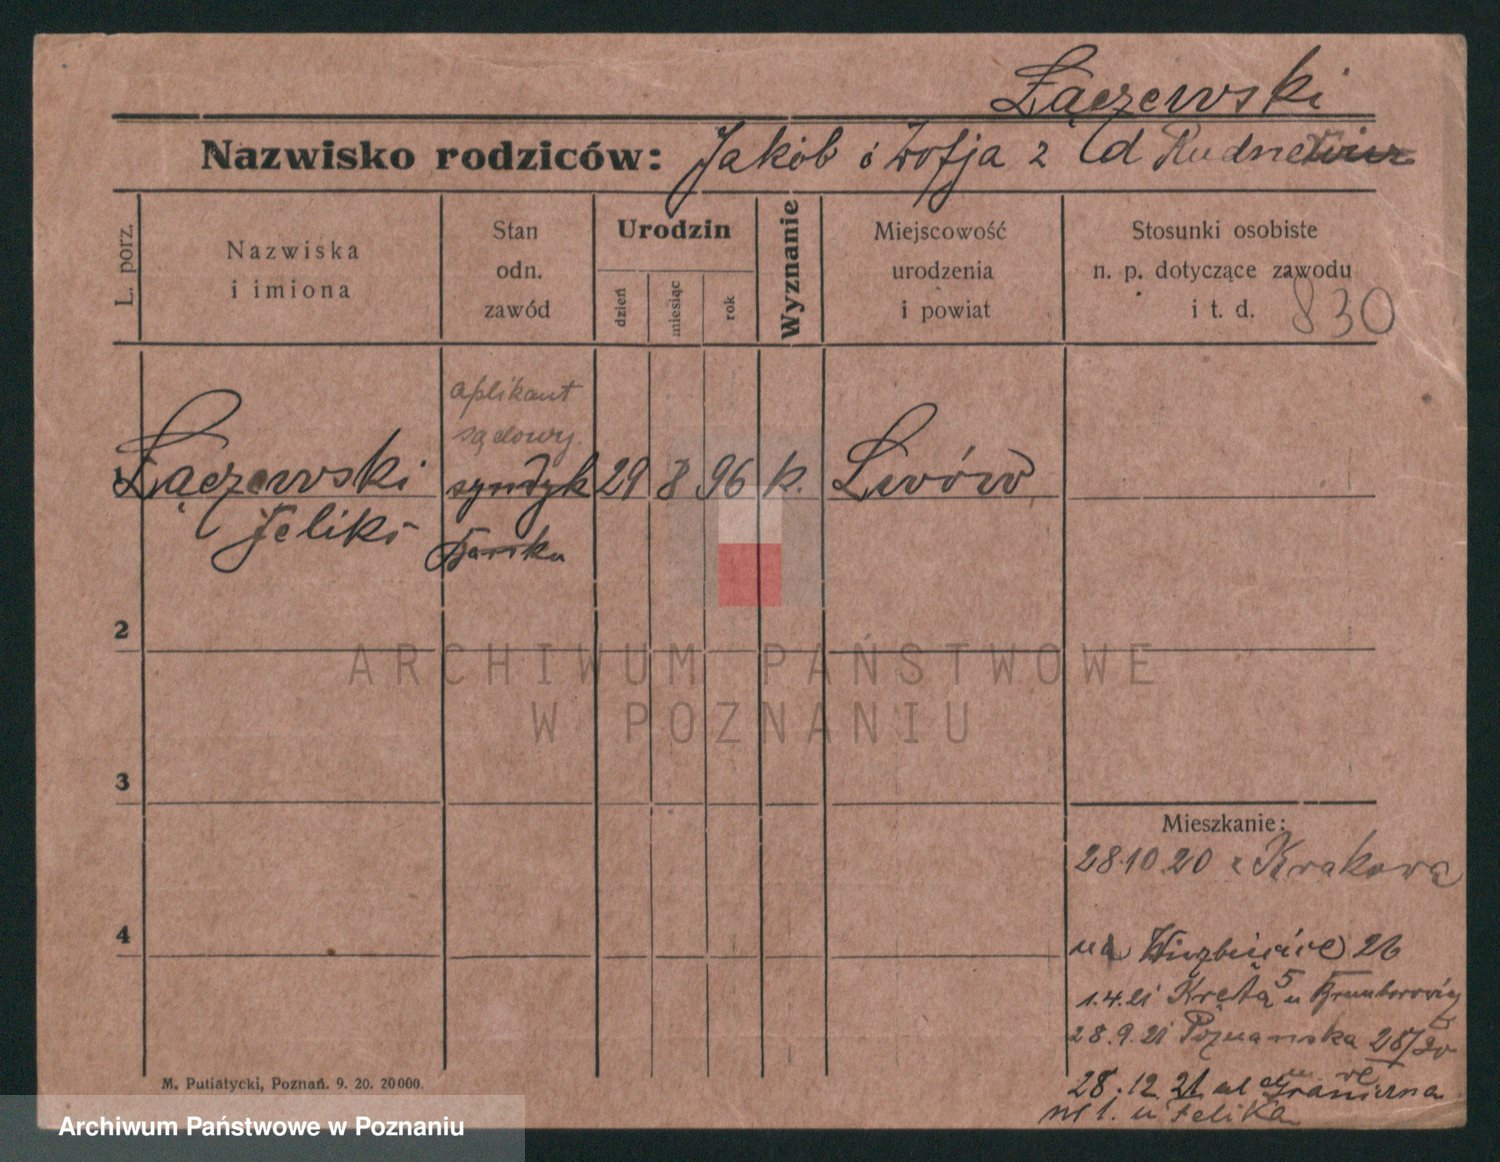 Łączewski
Nazwisko rodziców: Jakób i Zofja z d
L. porz.
Nazwiska
i imiona
Stan
odn.
zawód
Urodzin
dzień
miesiąc
rok
Wyznanie
Miejscowość
urodzenia
i powiat
Stosunki osobiste
n. p. dotyczące zawodu
i t. d.
830
aplikant
sądowy.
1 Łączewski syndyk 29 8 96 k. Lwów
Feliks banku
2
3
4
Mieszkanie:
28.10 20 z Krakowa
na 26
1.4.21 Kręta 5 u
28.9.21 Poznańska 28/30
28.12.21 Graniczna
nr 1. u Felika
M. Putiatycki, Poznań. 9. 20. 20000.
ARCHIWUM PAŃSTWOWE
W POZNANIU
Archiwum Państwowe w Poznaniu